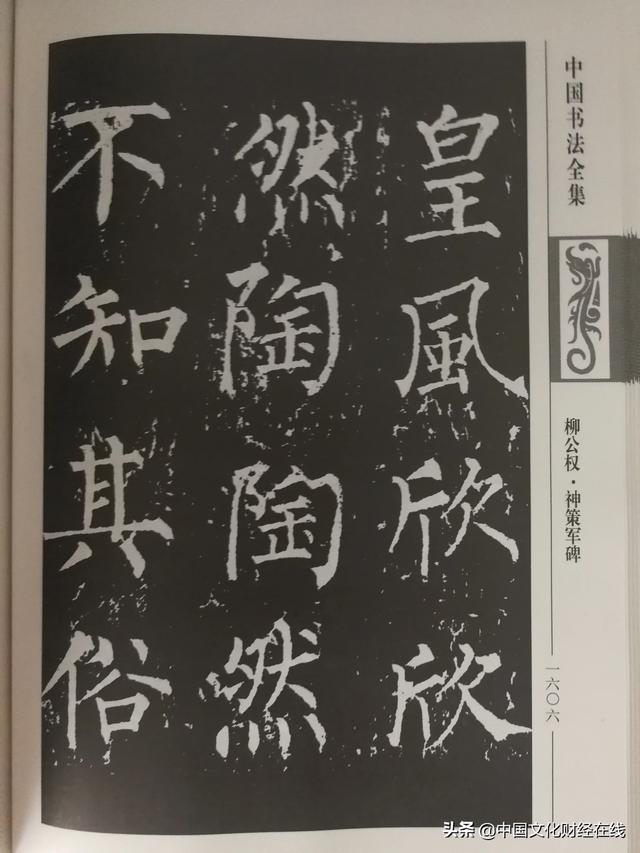 皇風欣欣
然陶陶然
不知其俗
中国书法全集
柳公权·神策军碑
一六〇六
头条 @中国文化财经在线